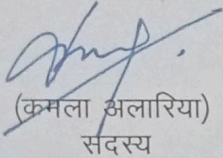 (कमला अलारिया)
सदस्य